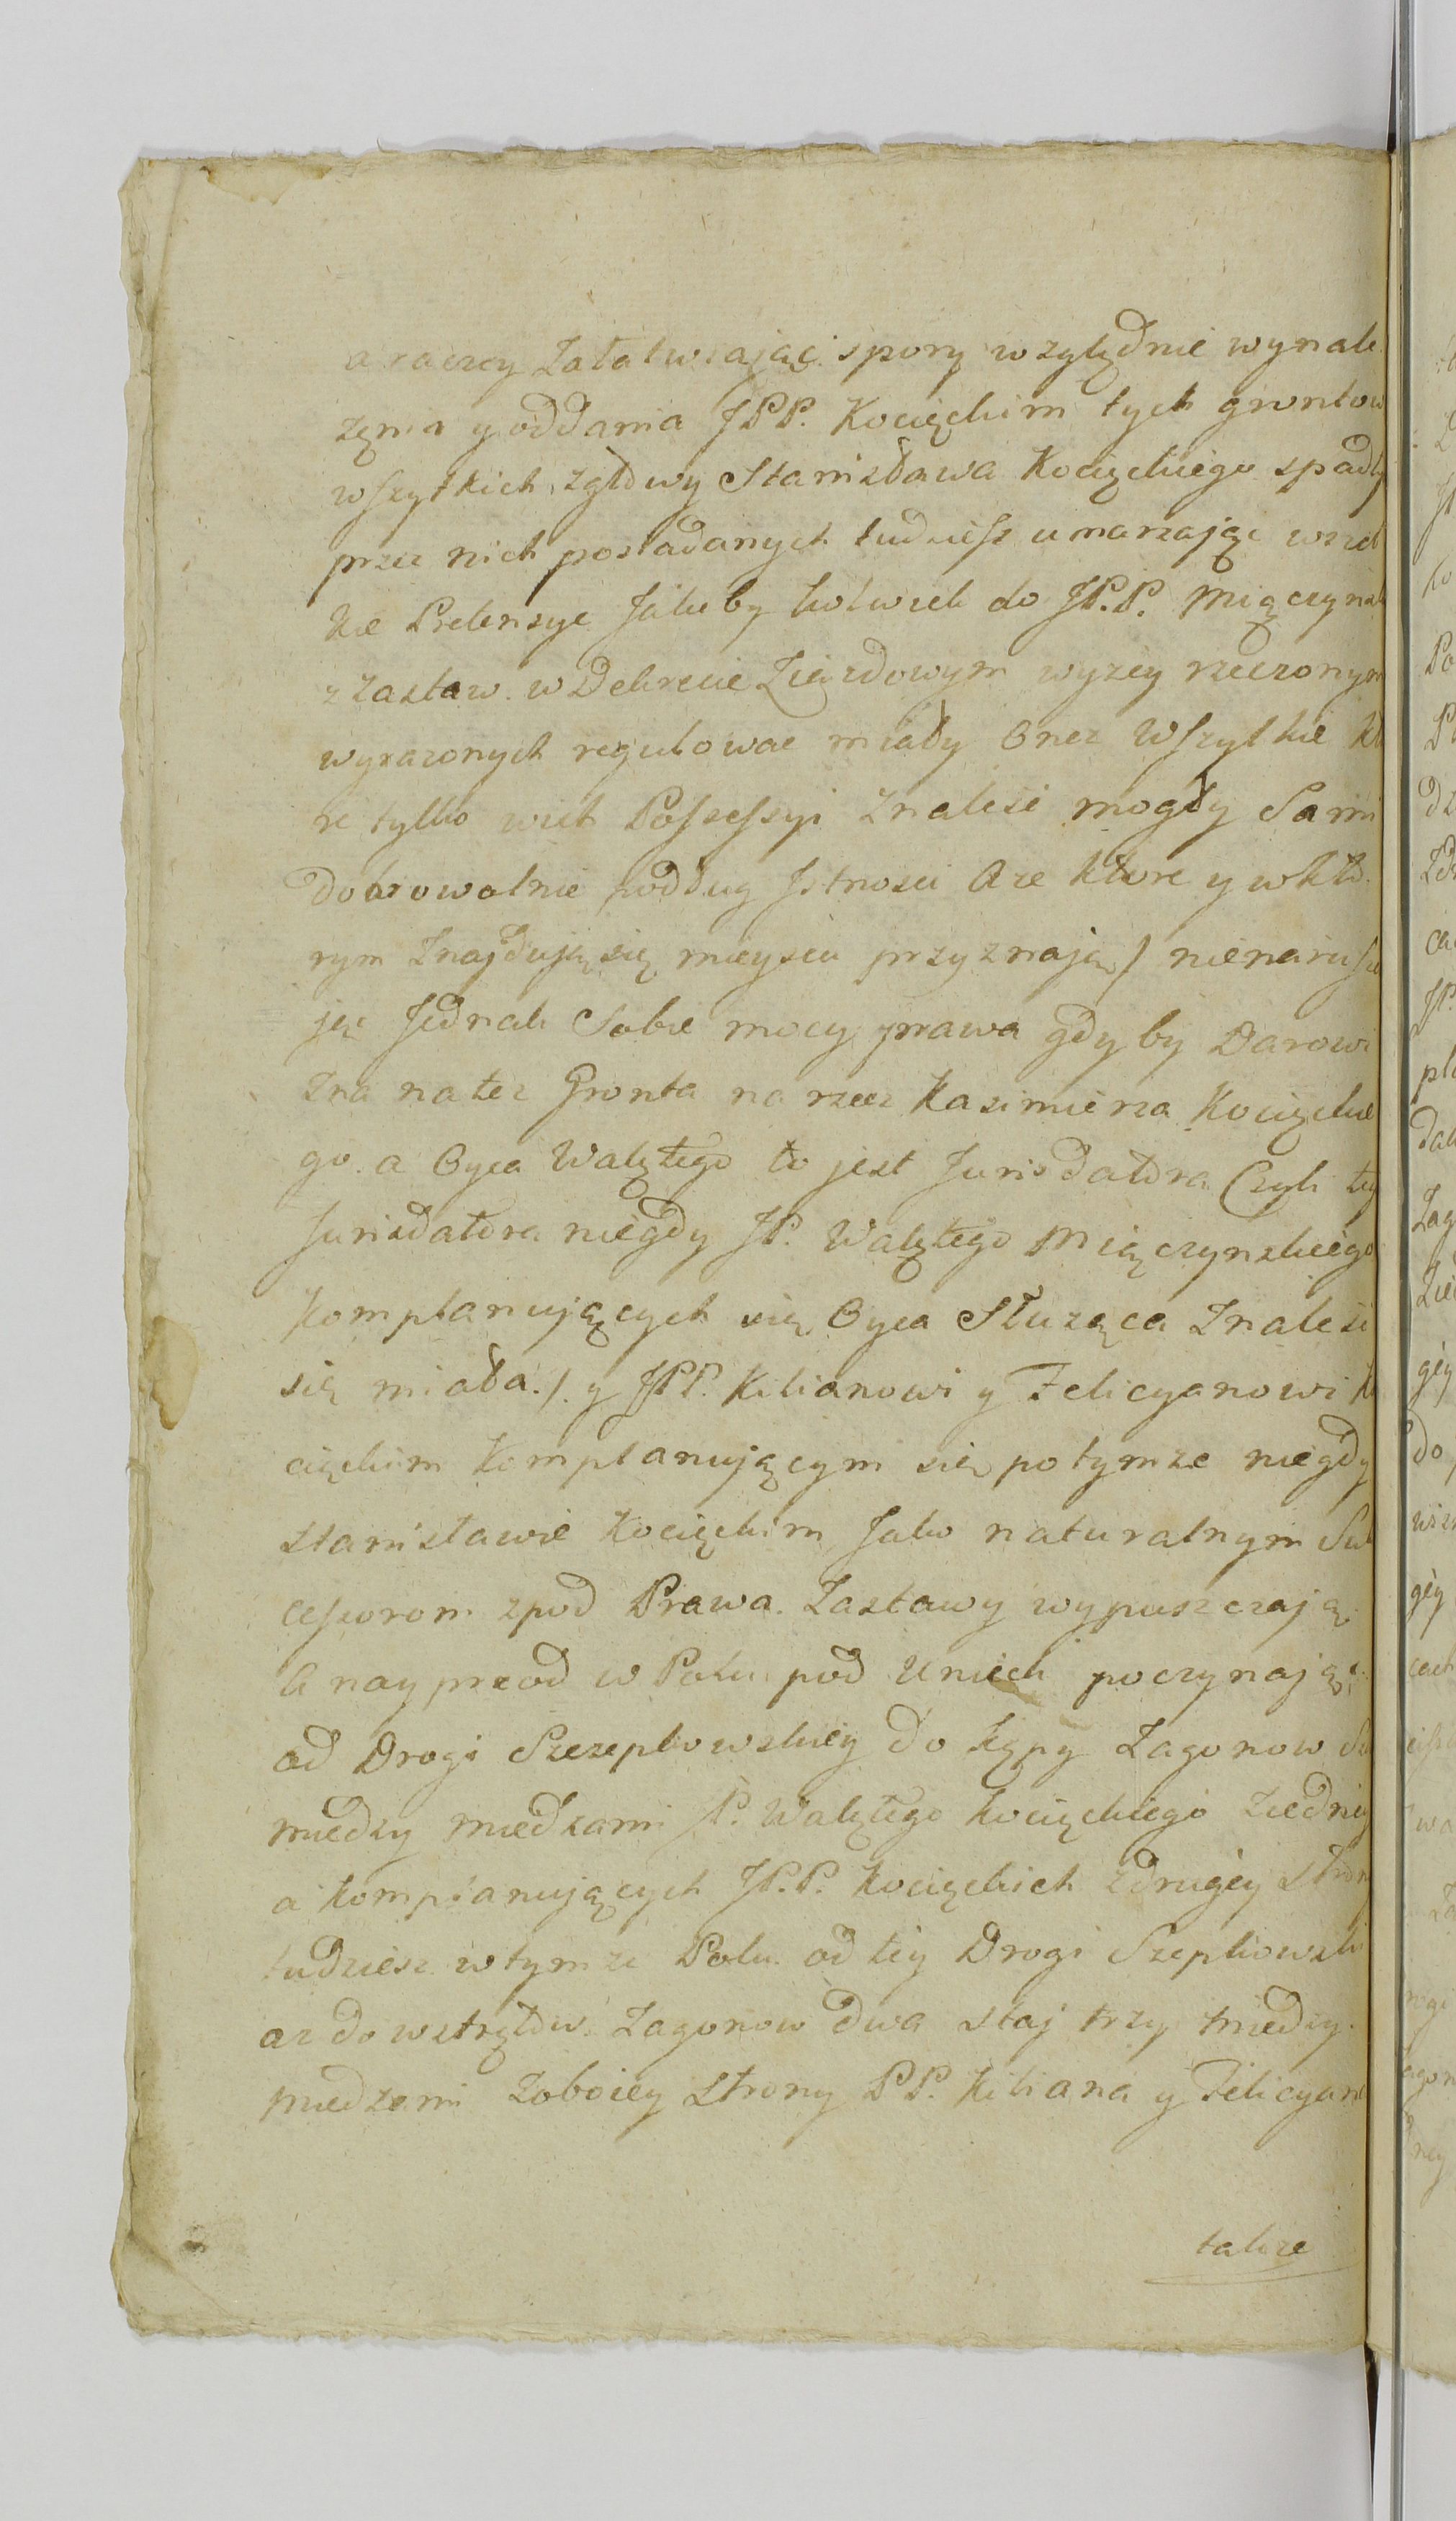 a raczey Załatwiaiąć spory względnie wynale
zęnia y oddania JPP. Kocięckim tych grontow
wszytkich zgłowy Stanisława Kocięckiego spadły
przez nich posiadanych tudziesz umarzaiąc wszel
kie Pretensye Jakeby kolwiek do JP.P. Miączynsk
z Zastaw. w Dekrecie Ziazdowym wyzey rzeczonym
wyrazonych regulowac miały Onez Wszytkie kt
re tylko wich Possessyi Znalesi mogły Sami
Dobrowolnie podług Jstnosci Aze ktore y w któ
rym Znajdują się mieyscu przyznają /nienarusza
jęc Jednak Sobie mocy prawa gdy by Darowi
zna na tez Gronta na rzecz Kazimierza Kocięckie
go a Oyca Walętego to jest Jurisdatora Czyli tey
Jurisdatora niegdy JP. Walętego Miączynskiego
Komplanujących się Oyca Słuząca Znalesi
się miała./. y JPP. Kilianowi y Felicyanowi Ko
cięckim Komplanującym się po tymze niegdy
Stanisławie Kocięckim Jako naturalnym Suk
cessorom zpod Prawa Zastawy wypuszczają
A nayprzod w Polu pod Uniecki poczynając
od Drogi Szczepkowskiey do Kępy Zagonow
miedzy miedzami P. Walętego Kocięckiego Ziedney
a Komplanujących JP.P. Kocięckich zdrugiey Stron
tudziesz w tymze Polu od tey Drogi Szepkowski
az do wstrętow Zagonow dwa staj trzy miedzy
miedzami Zoboiey Strony PP. Kiliana y Felicyana
takze